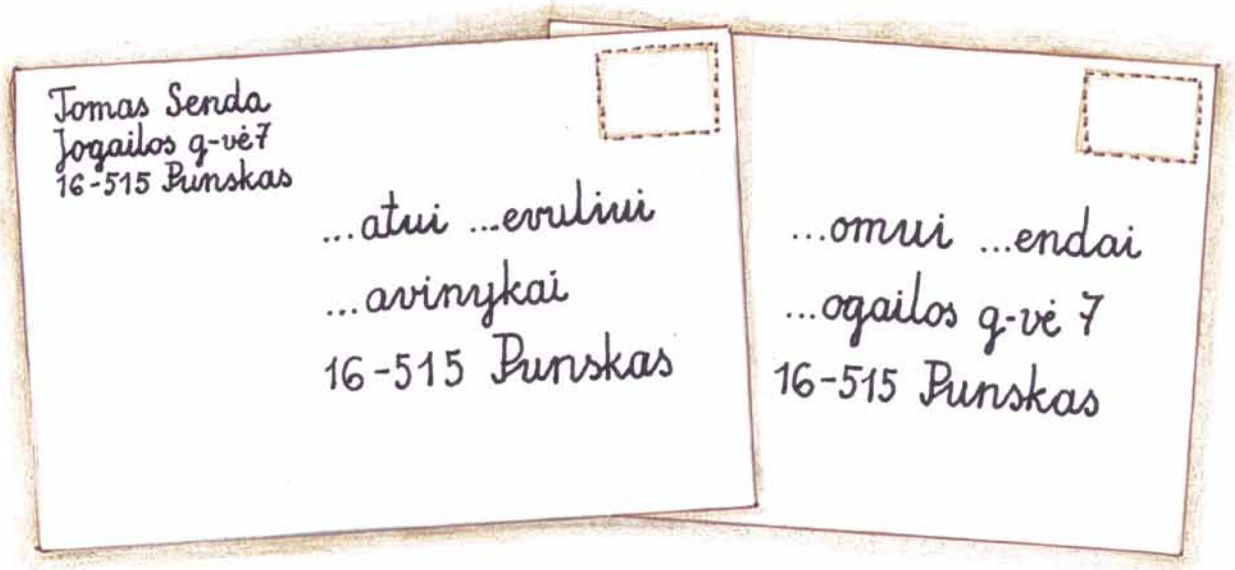 Tomas Senda
Jogailos g-vė 7
16-515 Punskas
...atui ...evuliui
...avinykai
16-515 Punskas
...omui ...endai
...ogailos g-vė 7
16-515 Punskas